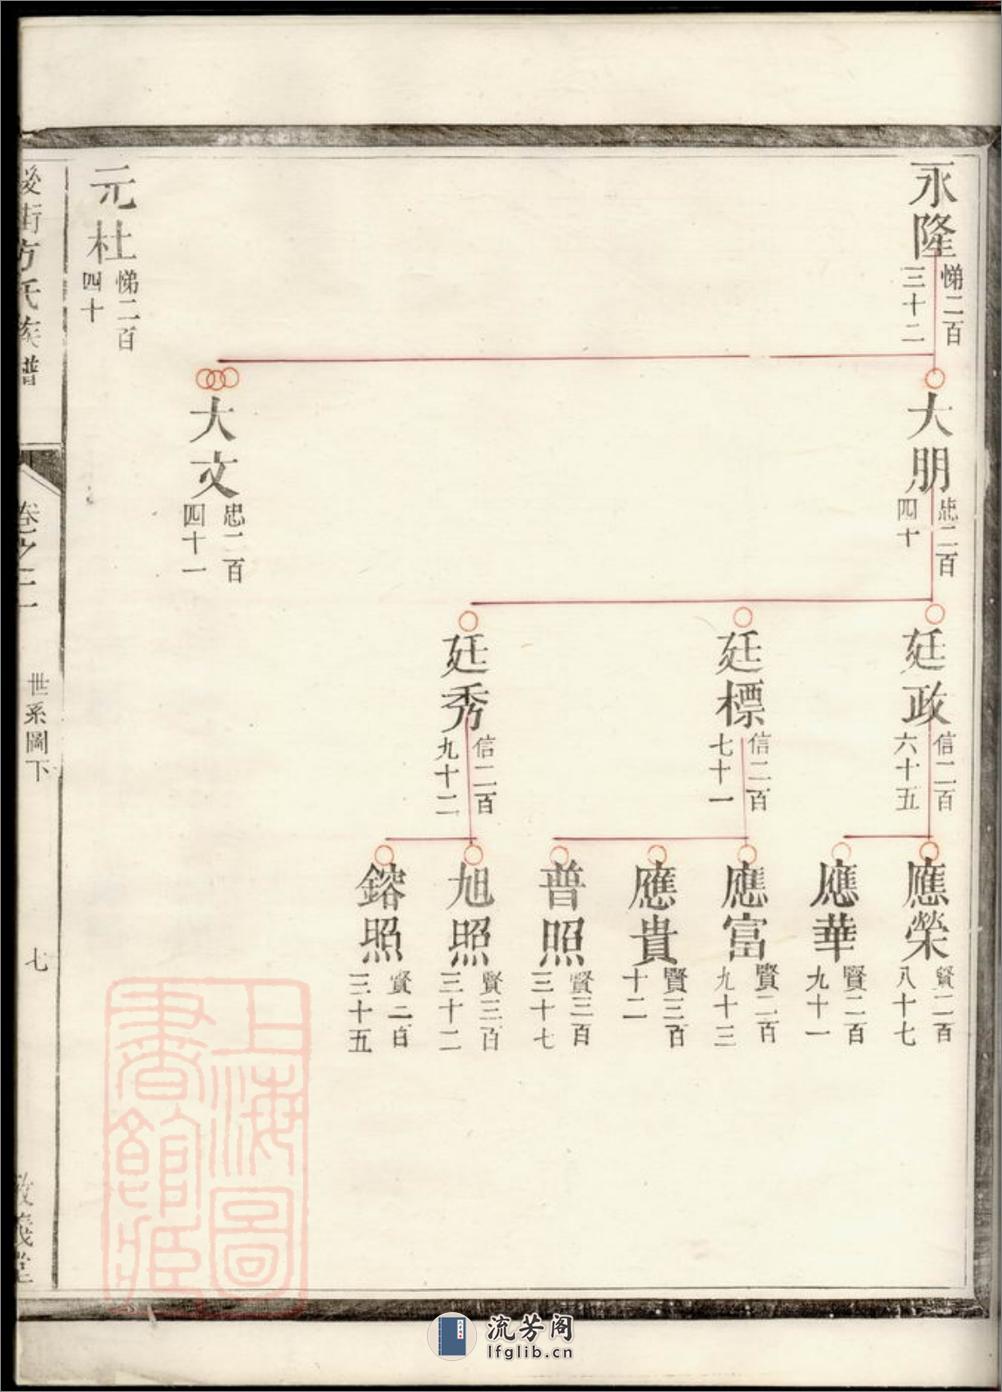 永隆
悌二百
三十二
大朋
忠二百
四十
廷政
信二百
六十五
應榮
賢二百
八十七
應華
賢二百
九十一
廷標
信二百
七十一
應富
賢二百
九十三
應貴
賢三百
十二
普照
賢三百
三十七
廷秀
信二百
九十二
旭照
賢三百
三十二
鎔照
賢二百
三十五
大文
忠二百
四十一
元杜
悌二百
四十
街方氏族譜
卷之二
世系圖下
七
義堂
上海圖書館藏
流芳阁
lfglib.cn